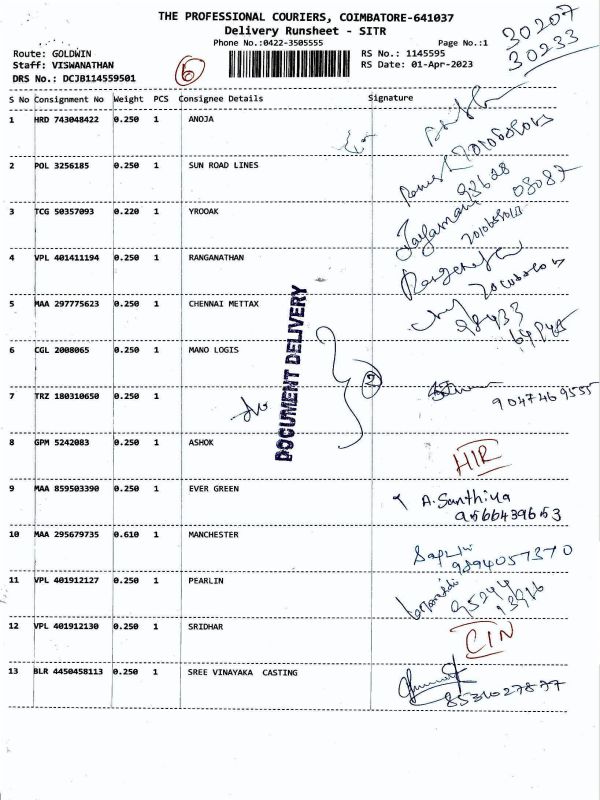 THE PROFESSIONAL COURIERS, COIMBATORE-641037
Delivery Runsheet - SITR
Phone No.:0422-3505555 Page No.:1
Route: GOLDWIN RS No.: 1145595
Staff: VISWANATHAN RS Date: 01-Apr-2023
DRS No.: DCJB114559501
6
30207
30233
S No Consignment No Weight PCS Consignee Details Signature
1 HRD 743048422 0.250 1 ANOJA
2 POL 3256185 0.250 1 SUN ROAD LINES
3 TCG 50357093 0.220 1 YROOAK
4 VPL 401411194 0.250 1 RANGANATHAN
5 MAA 297775623 0.250 1 CHENNAI METTAX
6 CGL 2008065 0.250 1 MANO LOGIS
2
DOCUMENT DELIVERY
7 TRZ 180310650 0.250 1
9047469555
8 GPM 5242083 0.250 1 ASHOK HIR
9 MAA 859503390 0.250 1 EVER GREEN A. Santhiya
9566439653
10 MAA 295679735 0.610 1 MANCHESTER
9894057370
11 VPL 401912127 0.250 1 PEARLIN
12 VPL 401912130 0.250 1 SRIDHAR CIN
13 BLR 4450458113 0.250 1 SREE VINAYAKA CASTING